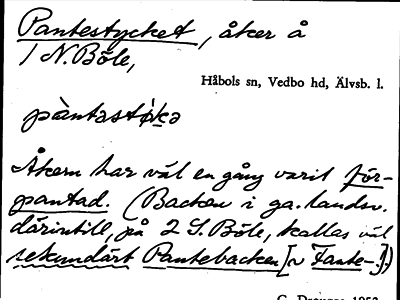 Pantestycket, åker å
1 N. Böle,
Håbols sn, Vedbo hd, Älvsb. l.
Åkern har väl en gång varit för-
pantad. (Backen i ga. landsv.
därintill, på 2 S. Böle, kallas väl
sekundärt Pantebacken [~ Fante-].)